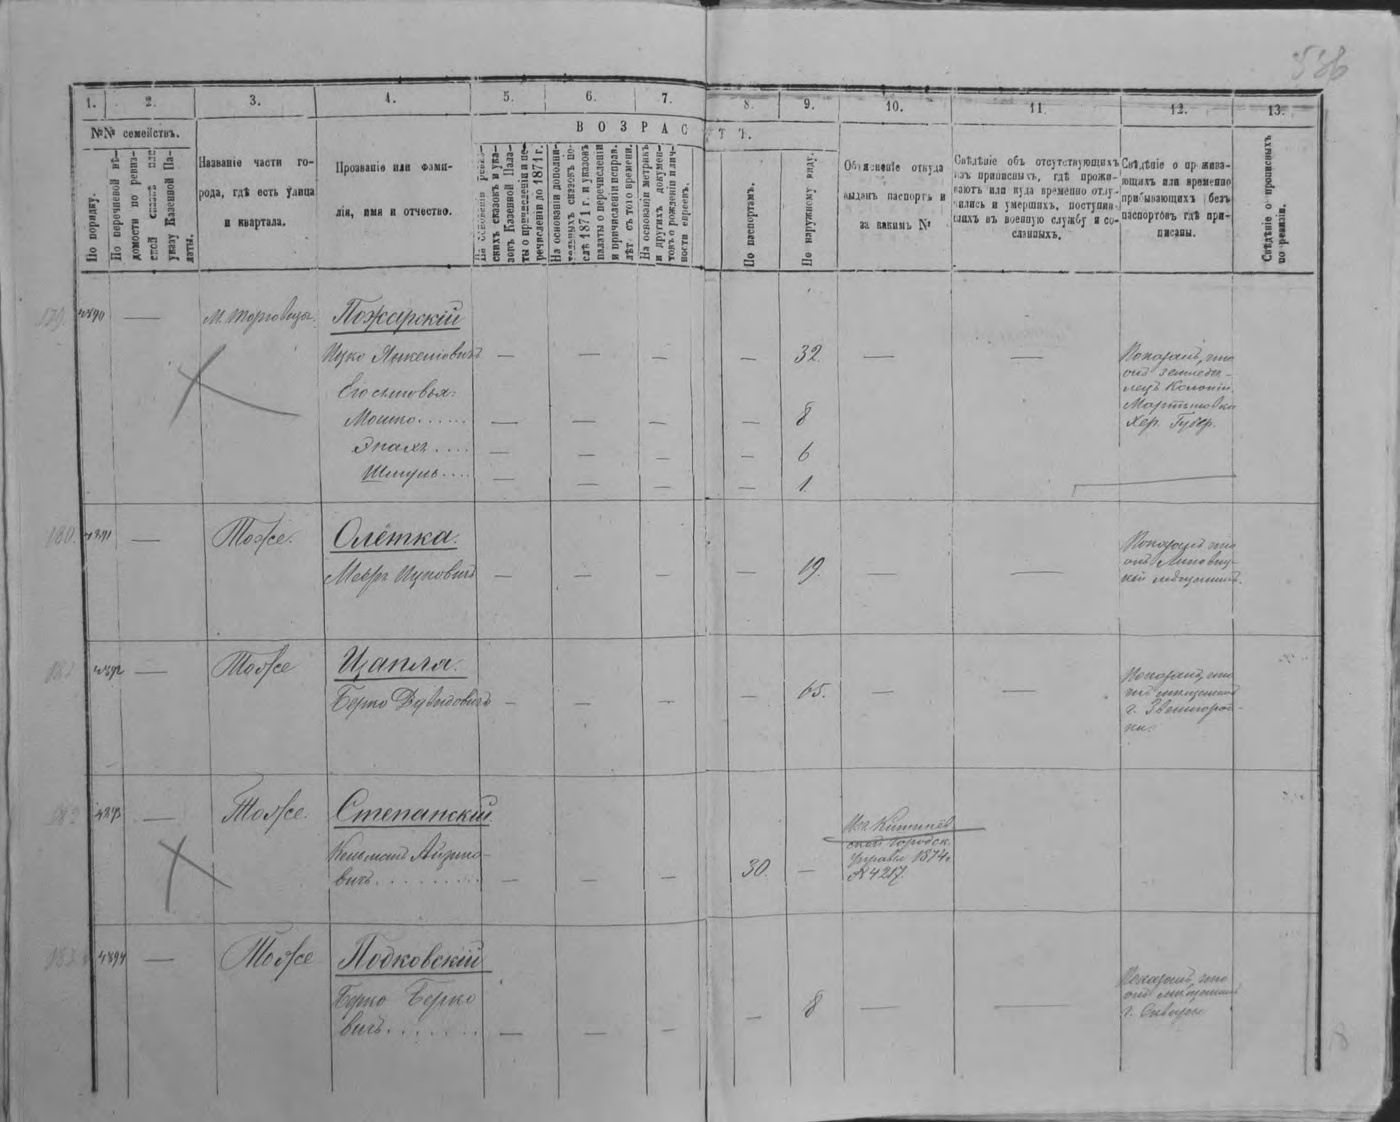 536
1.
2.
3.
4.
5.
6.
7.
8.
9.
10.
11
12.
13.
№№ семействъ.
По порядку.
По перечневой вѣ-
домости по ревиз-
ской сказкѣ или
указу Казенной Па-
латы.
Названіе части го-
рода, гдѣ есть улица
и квартала.
Прозваніе или фами-
лія, имя и отчество.
ВОЗРАСТЪ.
На основаніи ревиз-
скихъ сказокъ и ука-
зовъ Казенной Пала-
ты о причисленіи и пе-
речисленіи до 1871 г.
На основаніи дополни-
тельныхъ сказокъ по-
слѣ 1871 г. и указовъ
палаты о перечисленіи
и причисленіи исправ.
лѣт. съ того времени.
На основаніи метрикъ
и другихъ докумен-
товъ о рожденіи и лич-
ности евреевъ.
По паспортамъ.
По наружному виду.
Объясненіе откуда
выданъ паспортъ и
за какимъ №
Свѣдѣніе объ отсутствующихъ
изъ приписныхъ, гдѣ прожи-
ваютъ или куда временно отлу-
чились и умершихъ, поступив-
шихъ въ военную службу и со-
сланныхъ.
Свѣдѣніе о прожива-
ющихъ или временно
прибывающихъ безъ
паспортовъ гдѣ при-
писаны.
Свѣдѣніе о приписныхъ
по ревизіи.
179. — М. Торговица. Пожарскій
Ицко Янкеліовичъ — — — — 32 — — Показалъ, что
онъ земледѣ-
лецъ Колоніи
Мартыновки
Хер. Губер.
Его сыновья:
Мошко...... — — — — 8
.... — — — — 6
Шмуль.... — — — — 1
180. — Тоже. Олётка.
Мееръ Ицковичъ — — — — 19. — — Показалъ что
онъ
мѣщанинъ.
— Тоже Цапля.
Берко Дувидовичъ — — — — 65. — — Показалъ, что
онъ мѣщанинъ
г. Звенигород-
ки.
— Тоже. Степанскій
вичъ......... — — — 30. —
Изъ Кишинев
ской Городск.
Управы 1874 г.
№ 4217.
4894 — Тоже Подковскій
Берко Берко
вичъ....... — — — — 8 — — Показалъ, что
онъ мѣщанинъ
г. Сквиры